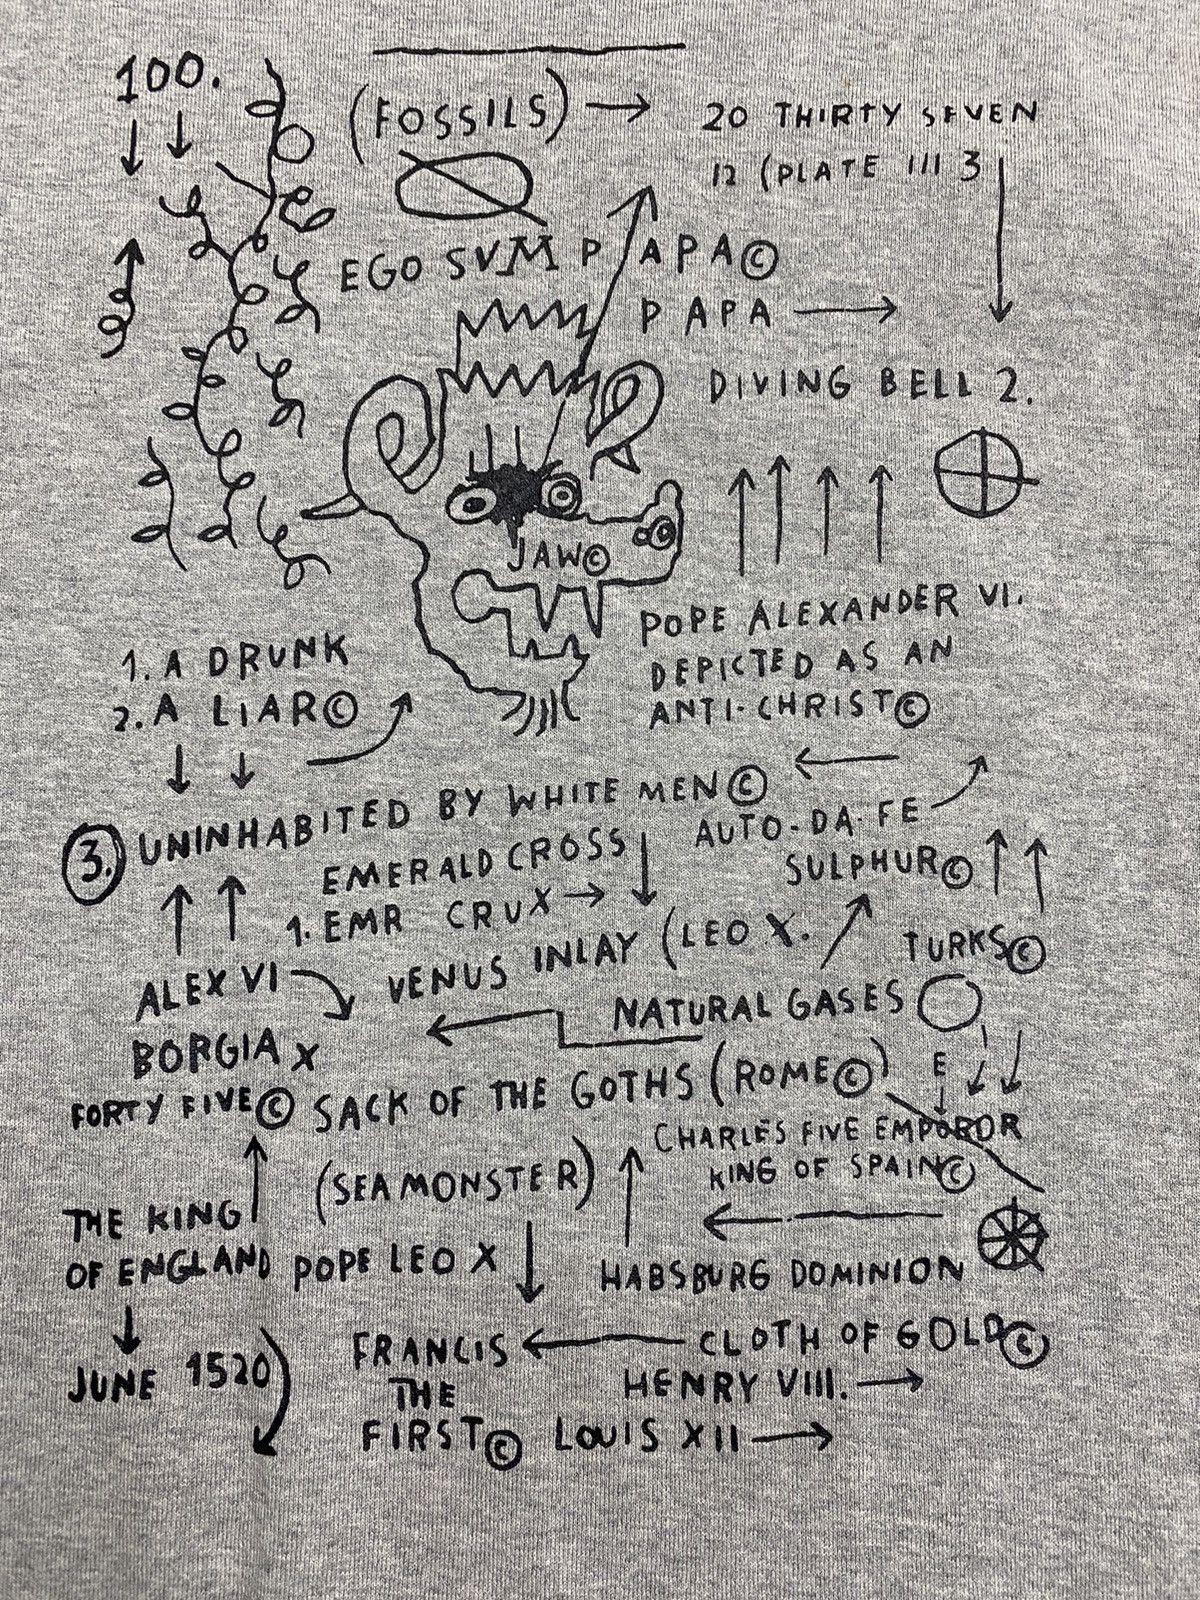 100.
(FOSSILS) → 20 THIRTY SEVEN
12 (PLATE III 3
EGO SVM PAPA©
PAPA →
DIVING BELL 2.
JAW©
POPE ALEXANDER VI.
DEPICTED AS AN
ANTI-CHRIST©
1. A DRUNK
2. A LIAR©
3. UNINHABITED BY WHITE MEN©
AUTO-DA-FE
EMERALD CROSS
SULPHUR©
1. EMR CRUX →
VENUS INLAY (LEO X.
TURKS©
ALEX VI
NATURAL GASES
BORGIA X
FORTY FIVE© SACK OF THE GOTHS (ROME©)
E
CHARLES FIVE EMPOROR
KING OF SPAIN©
(SEA MONSTER)
THE KING
OF ENGLAND POPE LEO X
HABSBURG DOMINION
JUNE 1520
FRANCIS ← CLOTH OF GOLD©
THE
HENRY VIII. →
FIRST© LOUIS XII →